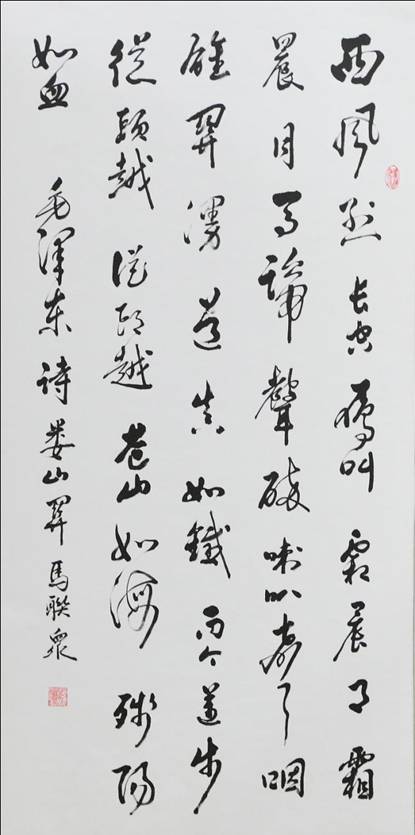 西風烈長空雁叫霜晨月霜
晨月馬蹄聲碎喇叭聲咽
雄關漫道真如鐵而今邁步
從頭越從頭越蒼山如海殘陽
如血 毛澤東詩婁山關馬聯衆